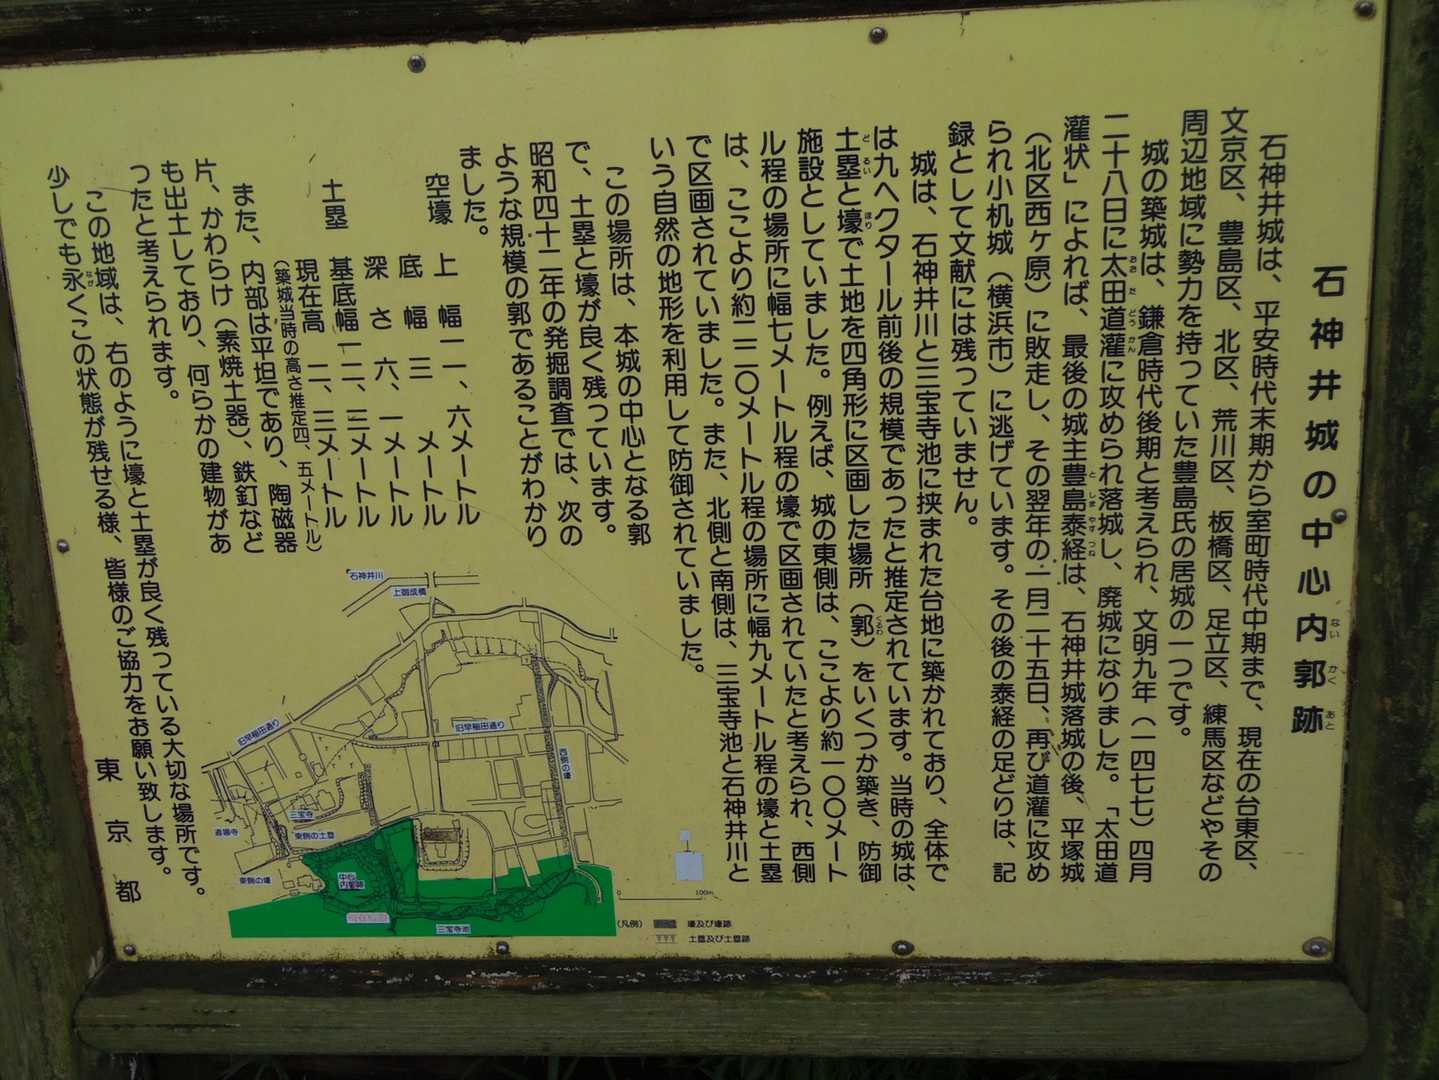 石神井城の中心内郭跡
石神井城は、平安時代末期から室町時代中期まで、現在の台東区、
文京区、豊島区、北区、荒川区、板橋区、足立区、練馬区などやその
周辺地域に勢力を持っていた豊島氏の居城の一つです。
城の築城は、鎌倉時代後期と考えられ、文明九年(一四七七)四月
二十八日に太田道灌に攻められ落城し、廃城になりました。「太田道
灌状」によれば、最後の城主豊島泰経は、石神井城落城の後、平塚城
(北区西ヶ原)に敗走し、その翌年の一月二十五日、再び道灌に攻め
られ小机城(横浜市)に逃げています。その後の泰経の足どりは、記
録として文献には残っていません。
城は、石神井川と三宝寺池に挟まれた台地に築かれており、全体で
は九ヘクタール前後の規模であったと推定されています。当時の城は、
土塁と壕で土地を四角形に区画した場所(郭)をいくつか築き、防御
施設としていました。例えば、城の東側は、ここより約一〇〇メート
ル程の場所に幅七メートル程の壕で区画されていたと考えられ、西側
は、ここより約二二〇メートル程の場所に幅九メートル程の壕と土塁
で区画されていました。また、北側と南側は、三宝寺池と石神井川と
いう自然の地形を利用して防御されていました。
この場所は、本城の中心となる郭
で、土塁と壕が良く残っています。
昭和四十二年の発掘調査では、次の
ような規模の郭であることがわかり
ました。
空壕 上幅 一一、六メートル
底幅 三メートル
深さ 六、一メートル
土塁 基底幅 一二、三メートル
現在高 二、三メートル
(築城当時の高さ推定四、五メートル)
また、内部は平坦であり、陶磁器
片、かわらけ(素焼土器)、鉄釘など
も出土しており、何らかの建物があ
ったと考えられます。
この地域は、右のように壕と土塁が良く残っている大切な場所です。
少しでも永くこの状態が残せる様、皆様のご協力をお願い致します。
東京都
石神井川
上御成橋
旧早稲田通り
旧早稲田通り
西側の壕
三宝寺
道場寺
東側の土塁
東側の壕
中心
内郭跡
三宝寺池
0 100m
(凡例) 壕及び壕跡
土塁及び土塁跡